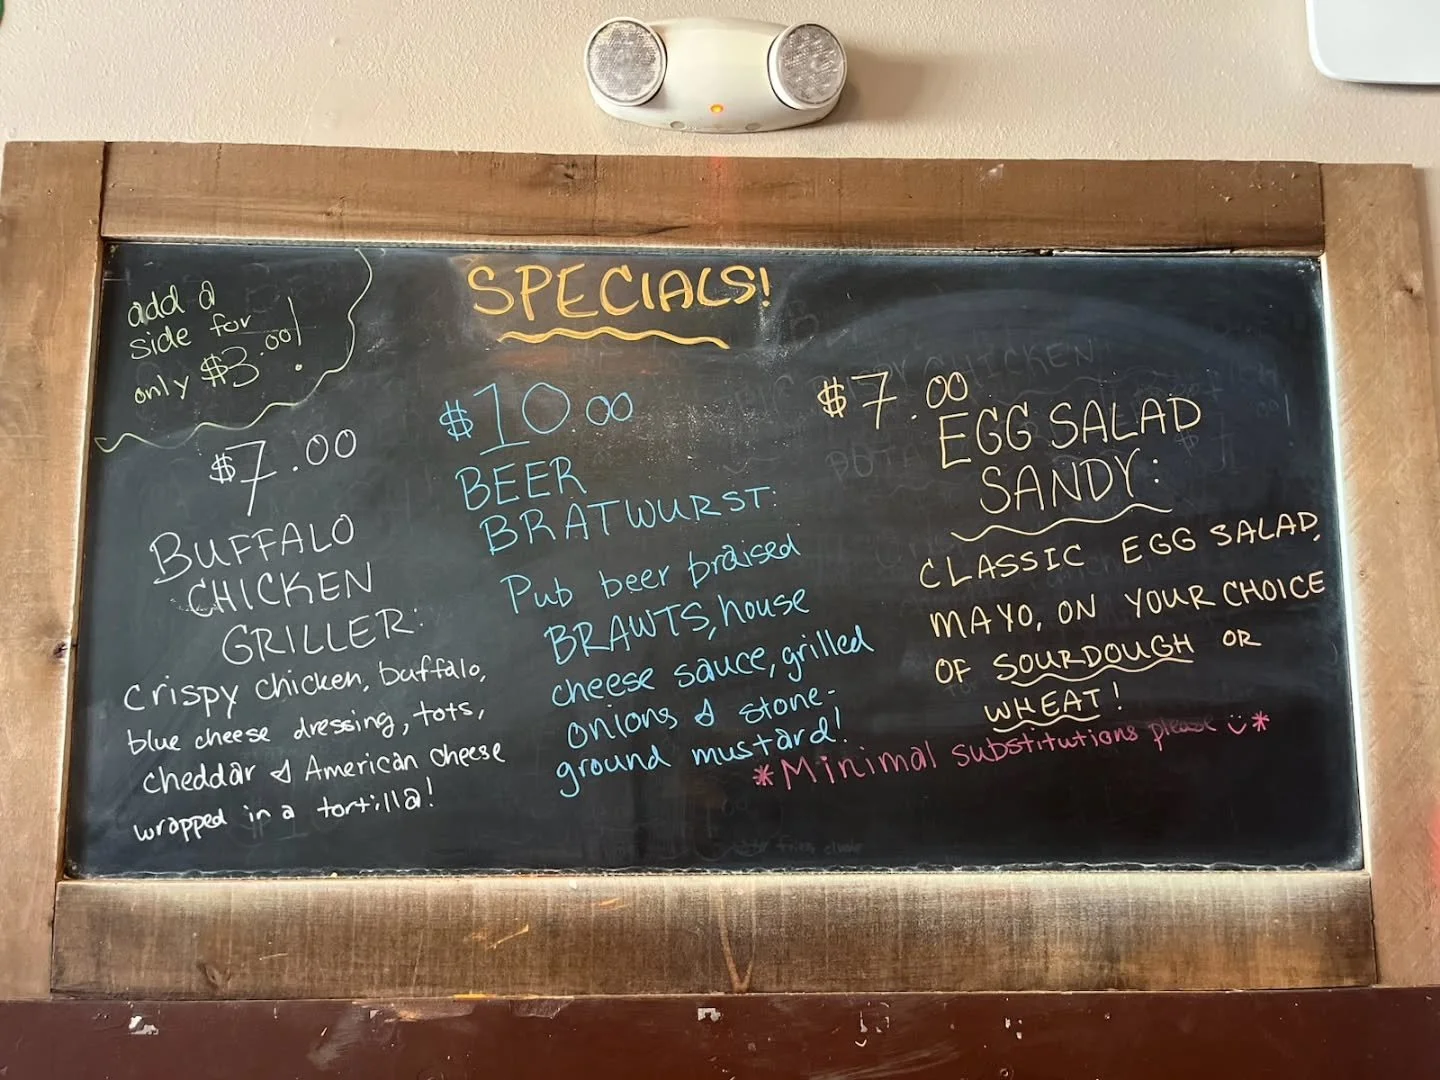 SPECIALS!
add a
side for
only $3.00!
$7.00
BUFFALO
CHICKEN
GRILLER:
crispy chicken, buffalo,
blue cheese dressing, tots,
cheddar & American cheese
wrapped in a tortilla!
$10.00
BEER
BRATWURST:
Pub beer braised
BRAWTS, house
cheese sauce, grilled
onions & stone-
ground mustard!
$7.00
EGG SALAD
SANDY:
CLASSIC EGG SALAD,
MAYO, ON YOUR CHOICE
OF SOURDOUGH OR
WHEAT!
*Minimal substitutions please ☺*